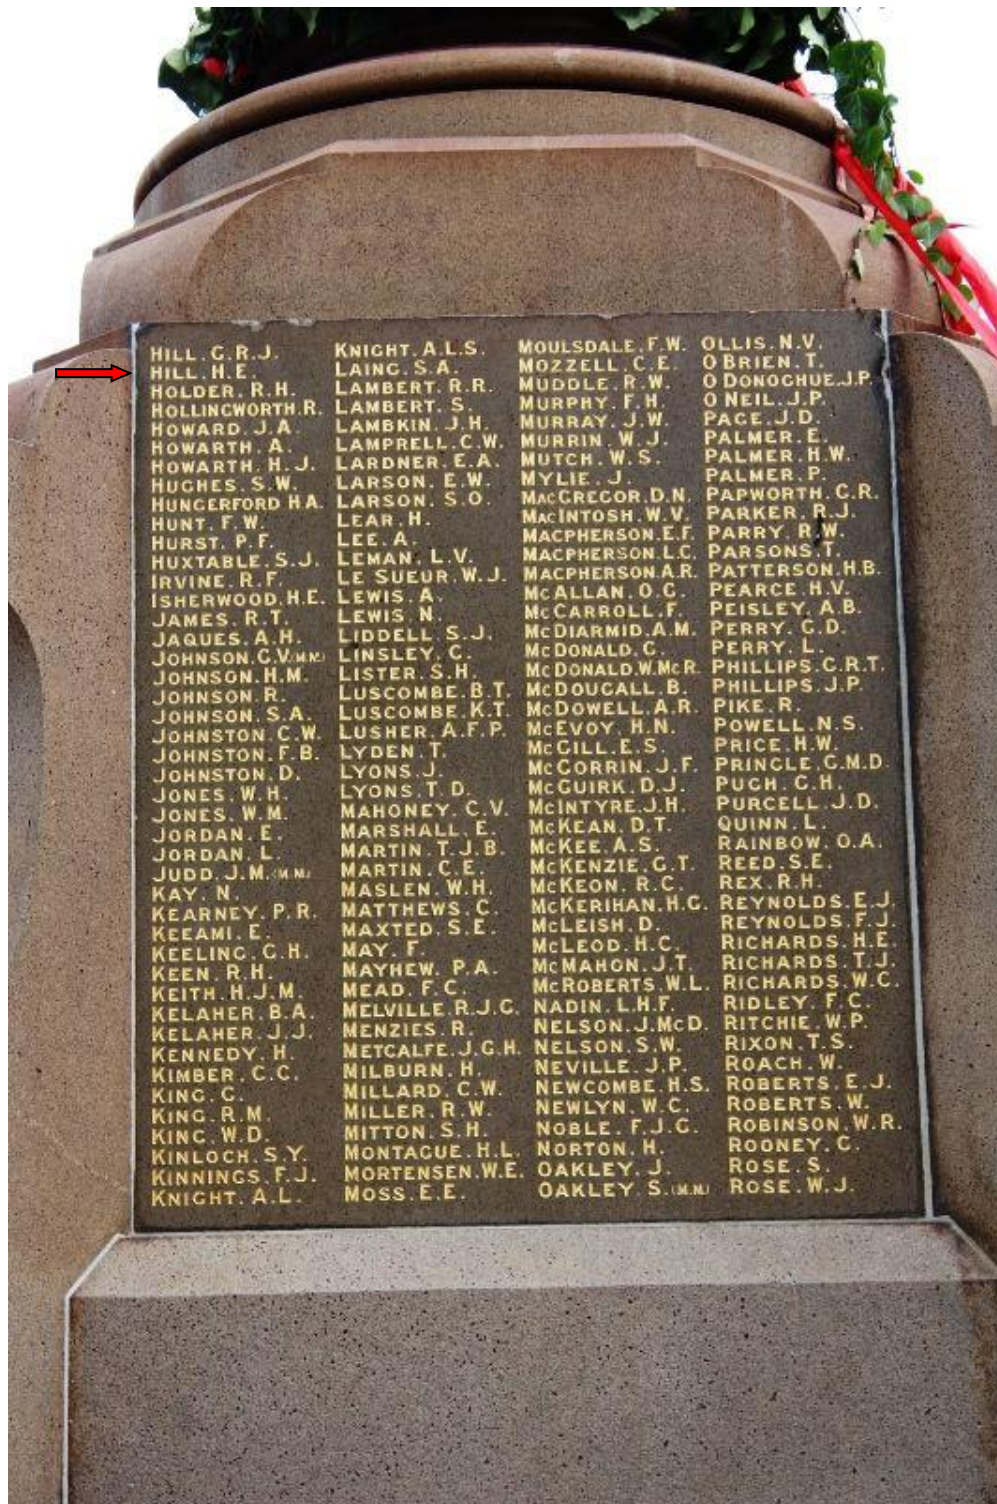 HILL. G.R.J.
HILL. H.E.
HOLDER. R.H.
HOLLINGWORTH. R.
HOWARD. J.A.
HOWARTH. A.
HOWARTH. H.J.
HUGHES. S.W.
HUNGERFORD H.A.
HUNT. F.W.
HURST. P.F.
HUXTABLE. S.J.
IRVINE. R.F.
ISHERWOOD. H.E.
JAMES. R.T.
JAQUES. A.H.
JOHNSON. G.V. (M.M.)
JOHNSON. H.M.
JOHNSON. R.
JOHNSON. S.A.
JOHNSTON. C.W.
JOHNSTON. F.B.
JOHNSTON. D.
JONES. W.H.
JONES. W.M.
JORDAN. E.
JORDAN. L.
JUDD. J.M. (M.M.)
KAY. N.
KEARNEY. P.R.
KEEAMI. E.
KEELING. G.H.
KEEN. R.H.
KEITH. H.J.M.
KELAHER. B.A.
KELAHER. J.J.
KENNEDY. H.
KIMBER. C.C.
KING. G.
KING. R.M.
KING. W.D.
KINLOCH. S.Y.
KINNINGS. F.J.
KNIGHT. A.L.
KNIGHT. A.L.S.
LAING. S.A.
LAMBERT. R.R.
LAMBERT. S.
LAMBKIN. J.H.
LAMPRELL. C.W.
LARDNER. E.A.
LARSON. E.W.
LARSON. S.O.
LEAR. H.
LEE. A.
LEMAN. L.V.
LE SUEUR. W.J.
LEWIS. A.
LEWIS. N.
LIDDELL. S.J.
LINSLEY. C.
LISTER. S.H.
LUSCOMBE. B.T.
LUSCOMBE. K.T.
LUSHER. A.F.P.
LYDEN. T.
LYONS. J.
LYONS. T.D.
MAHONEY. C.V.
MARSHALL. E.
MARTIN. T.J.B.
MARTIN. C.E.
MASLEN. W.H.
MATTHEWS. C.
MAXTED. S.E.
MAY. F.
MAYHEW. P.A.
MEAD. F.C.
MELVILLE. R.J.G.
MENZIES. R.
METCALFE. J.G.H.
MILBURN. H.
MILLARD. C.W.
MILLER. R.W.
MITTON. S.H.
MONTAGUE. H.L.
MORTENSEN. W.E.
MOSS. E.E.
MOULSDALE. F.W.
MOZZELL. C.E.
MUDDLE. R.W.
MURPHY. F.H.
MURRAY. J.W.
MURRIN. W.J.
MUTCH. W.S.
MYLIE. J.
MACGREGOR. D.N.
MACINTOSH. W.V.
MACPHERSON. E.F.
MACPHERSON. L.C.
MACPHERSON. A.R.
MCALLAN. O.G.
MCCARROLL. F.
MCDIARMID. A.M.
MCDONALD. C.
MCDONALD. W.MCR.
MCDOUGALL. B.
MCDOWELL. A.R.
MCEVOY. H.N.
MCGILL. E.S.
MCGORRIN. J.F.
MCGUIRK. D.J.
MCINTYRE. J.H.
MCKEAN. D.T.
MCKEE. A.S.
MCKENZIE. G.T.
MCKEON. R.C.
MCKERIHAN. H.G.
MCLEISH. D.
MCLEOD. H.C.
MCMAHON. J.T.
MCROBERTS. W.L.
NADIN. L.H.F.
NELSON. J.MCD.
NELSON. S.W.
NEVILLE. J.P.
NEWCOMBE. H.S.
NEWLYN. W.C.
NOBLE. F.J.G.
NORTON. H.
OAKLEY. J.
OAKLEY. S. (M.M.)
OLLIS. N.V.
O BRIEN. T.
O DONOGHUE. J.P.
O NEIL. J.P.
PAGE. J.D.
PALMER. E.
PALMER. H.W.
PALMER. P.
PAPWORTH. C.R.
PARKER. R.J.
PARRY. R.W.
PARSONS. T.
PATTERSON. H.B.
PEARCE. H.V.
PEISLEY. A.B.
PERRY. G.D.
PERRY. L.
PHILLIPS. G.R.T.
PHILLIPS. J.P.
PIKE. R.
POWELL. N.S.
PRICE. H.W.
PRINGLE. G.M.D.
PUGH. G.H.
PURCELL. J.D.
QUINN. L.
RAINBOW. O.A.
REED. S.E.
REX. R.H.
REYNOLDS. E.J.
REYNOLDS. F.J.
RICHARDS. H.E.
RICHARDS. T.J.
RICHARDS. W.C.
RIDLEY. F.C.
RITCHIE. W.P.
RIXON. T.S.
ROACH. W.
ROBERTS. E.J.
ROBERTS. W.
ROBINSON. W.R.
ROONEY. C.
ROSE. S.
ROSE. W.J.